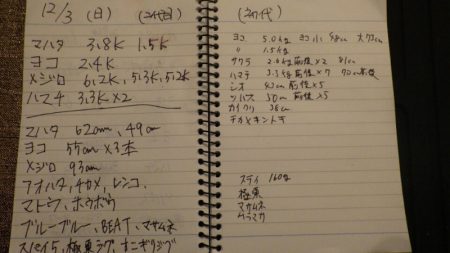 12/3 (日)
マハタ 3.8K 1.5K
ヨコ 2.4K
メジロ 6.2K, 5.3K, 5.2K
ハマチ 3.3K×2
マハタ 62cm, 49cm
ヨコ 55cm×3本
メジロ 93cm
アオハタ, チカメ, レンコ,
マトウ, ホウボウ
ブルーブルー, BEAT, マサムネ
スパイ5, 極東ラグ, オニギリジグ
(初代)
ヨコ 5.0kg ヨコ小
〃 1.5kg
サワラ 2.6kg前後×2 81cm
ハマチ 3.3kg前後×7 70cm前後
シオ 42cm前後×5
ツバス 50cm前後×5
カイワリ 38cm
チカメキントキ
スティ 160g
極東
マサムネ
ムラマサ